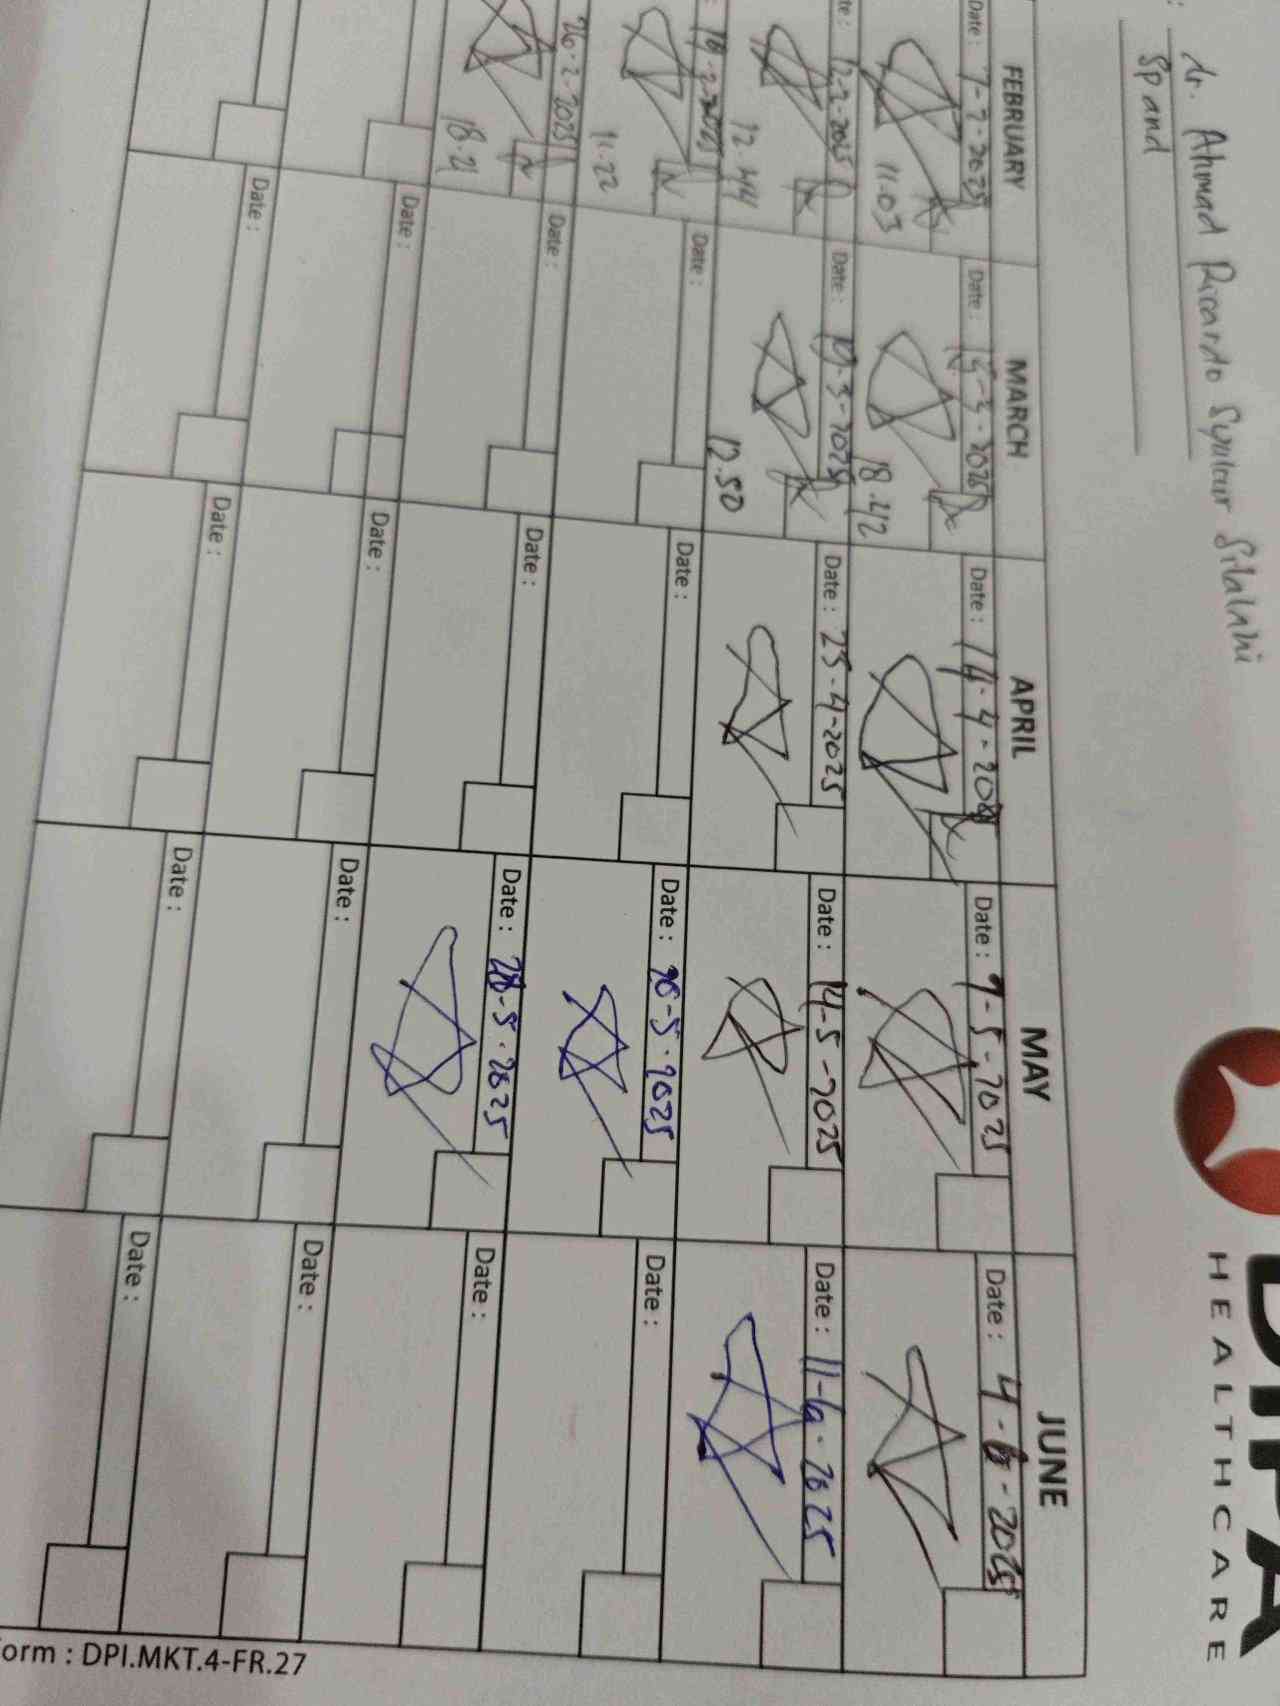 DIPA
HEALTHCARE
: dr. Ahmad Riccardo Syukur Silalahi
Sp and
FEBRUARY MARCH APRIL MAY JUNE
Date : 7-2-2025 Date : 15-3-2025 Date : 14-4-2025 Date : 7-5-2025 Date : 4-6-2025
11.03 18.42
te : 12-2-2025 Date : 19-3-2025 Date : 23-4-2025 Date : 14-5-2025 Date : 11-6-2025
12.44 12.50
: 18-2-2025 Date : Date : Date : 20-5-2025 Date :
11.22
26-2-2025 Date : Date : Date : 28-5-2025 Date :
18.21
Date : Date : Date : Date :
Date : Date : Date : Date :
orm : DPI.MKT.4-FR.27